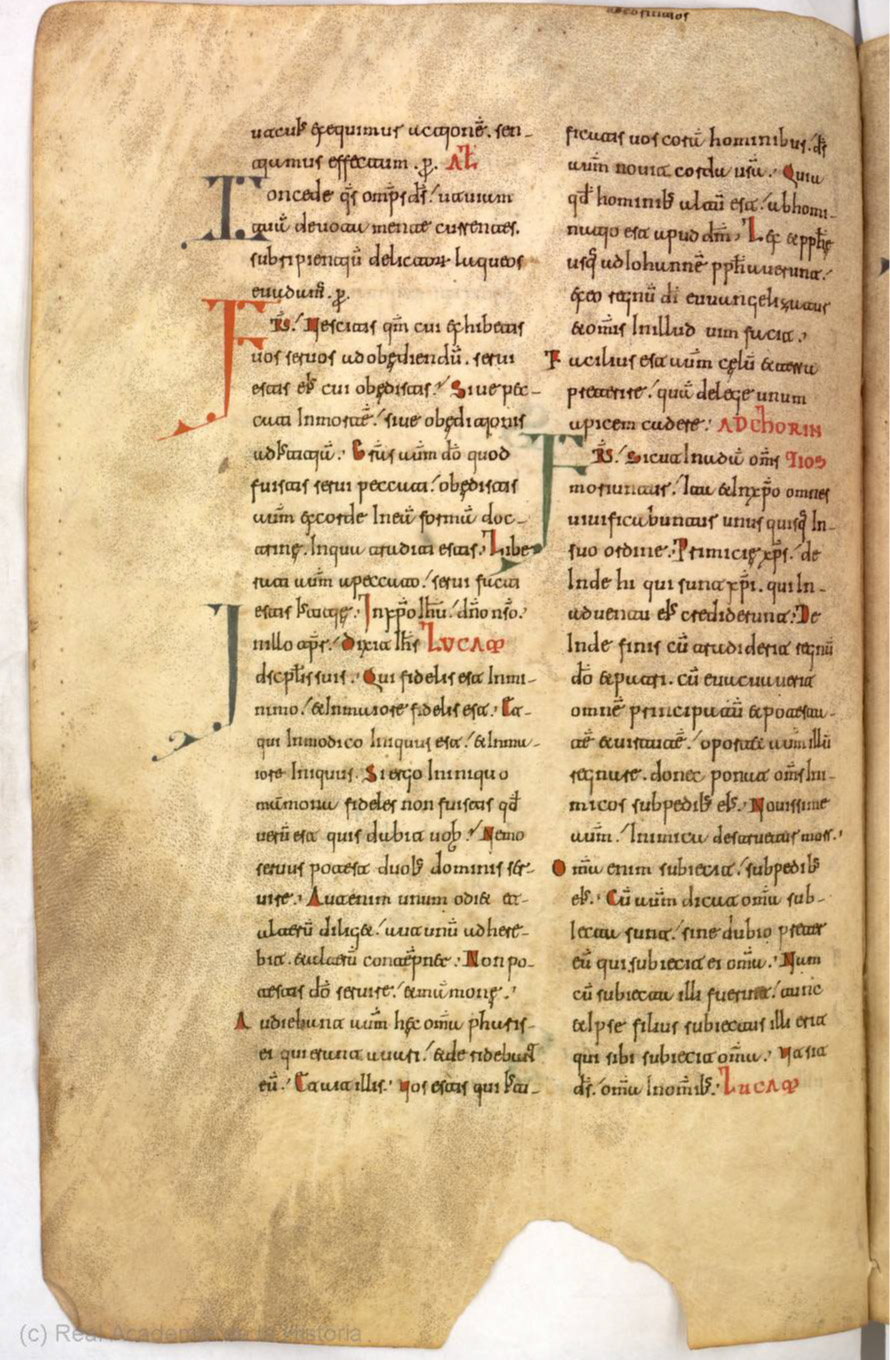 ascositimos
uaculis exequimur actionē. sen-
tiamus effectum. p̄. AL̄
Concede q̄s omp̄s d̄s. ut uiam
tuā deuota mente currentes.
subripientiū delictorum laqueos
euadam̄. p̄.
FR̄S. Nescitis qm̄ cui exhibetis
uos seruos ad obędiendū. serui
estis ei͛ cui obędistis. Siue pec-
cati In mortē. siue obęditionis
ad Iustitiā. Gr̄as aūm d̄o quod
fuistis serui peccati. obędistis
aūm ex corde In eā formā doc-
trinę. In qua traditi estis. Libe-
rati aūm a peccato. serui facti
estis Iustitię. In xp̄o Ih̄u. dn̄o nr̄o.
In illo tp̄r. Dixit Ih̄s LUCAM
dscpl̄is suis. Qui fidelis est In mi-
nimo. & In maiore fidelis est. Et
qui In modico Iniquus est. & In ma-
iore Iniquus. Si ergo In iniquo
māmona fideles non fuistis qd̄
uerū est quis dabit uob̄. Nemo
seruus potest duob͛ dominis ser-
uire. Aut enim unum odi& et
alterū dilig&. aut unū adhere-
bit. & alterū contēpnet. Non po-
testis d̄o seruire. & māmonę.
Audiebant aūm hęc om̄a pharis-
ei qui erant auari. & deridebant
eū. Et ait illis. Uos estis qui Iusti-
ficatis uos corā hominibus. d̄s
aūm nouit corda ur̄a. Quia
qd̄ hominib͛ altū est. abhomi-
natio est apud dm̄. Lex & ppħę
usq̄ ad Iohannē ppħauerunt.
ex eo regnū d̄i euuangelizatur
& om̄is In illud uim facit.
Facilius est aūm cęlū & terra
preterire. quā de lege unum
apicem cadere. AD CHORIN
FR̄S. Sicut In adā om̄s TIOS
moriuntur. Ita & In xp̄o omnes
uiuificabuntur unus quisq̄ In
suo ordine. Primicię xp̄s. de
Inde hi qui sunt xp̄i. qui In
aduentu ei͛ crediderunt. De
Inde finis cū tradiderit regnū
d̄o & patri. cū euacuauerit
omnē principatū & potesta-
tē & uirtutē. oport& aūm illū
regnare. donec ponat om̄s Ini-
micos sub pedib͛ ei͛. Nouissime
aūm. Inimica destruetur mors.
Om̄a enim subiecit. sub pedib͛
ei͛. Cū aūm dicat om̄a sub-
Iecta sunt. sine dubio preter
eū qui subiecit ei om̄a. Cum
cū subiecta illi fuerint. tunc
& Ipse filius subiectus illi erit
qui sibi subiecit om̄a. ut sit
d̄s. om̄a In om̄ib͛. LUCAM
(c) Real Academia de la Historia